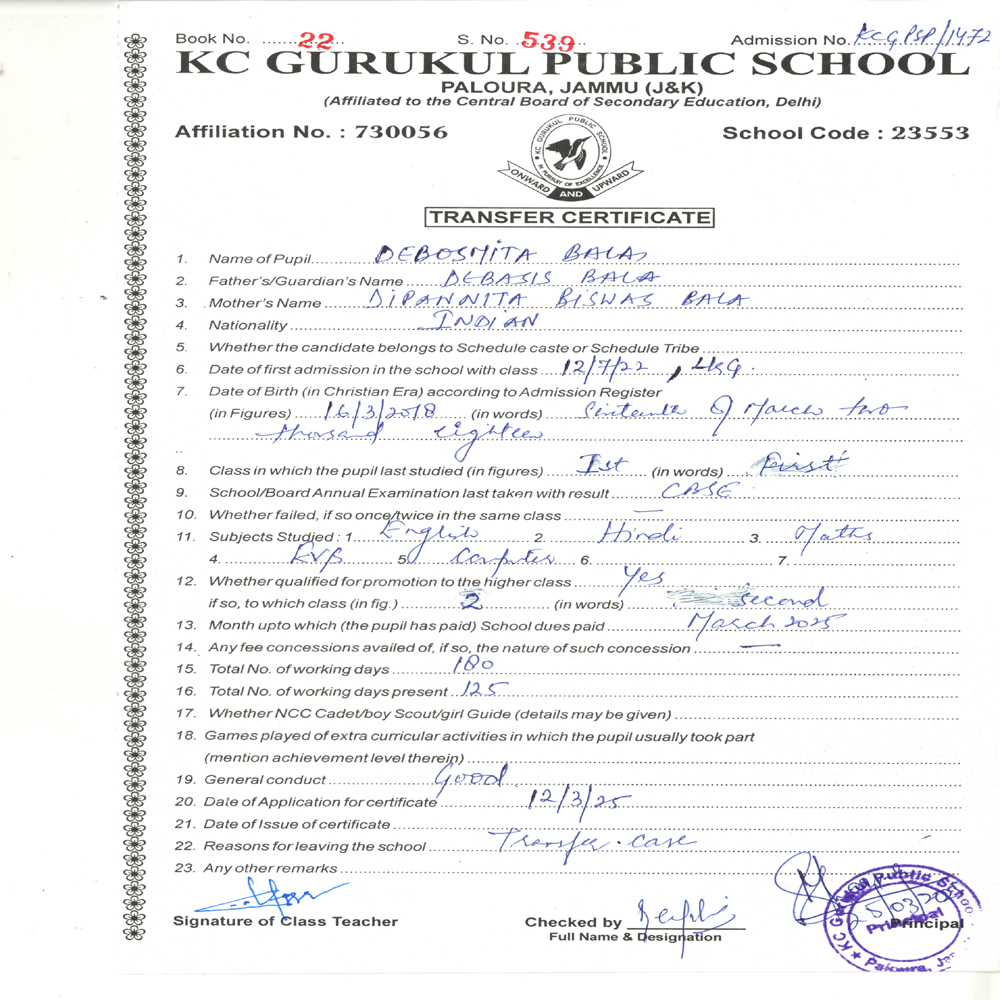 Book No. 22 S. No. 539 Admission No. KCGPSP/1472
KC GURUKUL PUBLIC SCHOOL
PALOURA, JAMMU (J&K)
(Affiliated to the Central Board of Secondary Education, Delhi)
Affiliation No. : 730056 School Code : 23553
KC GURUKUL PUBLIC SCHOOL
IN PURSUIT OF EXCELLENCE
ONWARD AND UPWARD
TRANSFER CERTIFICATE
1. Name of Pupil DEBOSMITA BALA
2. Father's/Guardian's Name DEBASIS BALA
3. Mother's Name DIPANNITA BISWAS BALA
4. Nationality INDIAN
5. Whether the candidate belongs to Schedule caste or Schedule Tribe
6. Date of first admission in the school with class 12/7/22, LKG.
7. Date of Birth (in Christian Era) according to Admission Register
(in Figures) 16/3/2018 (in words) Sixteenth Of March two
thousand eighteen
8. Class in which the pupil last studied (in figures) Ist (in words) First
9. School/Board Annual Examination last taken with result CBSE
10. Whether failed, if so once/twice in the same class —
11. Subjects Studied : 1. English 2. Hindi 3. Maths
4. EVS 5. Computer 6. 7.
12. Whether qualified for promotion to the higher class Yes
if so, to which class (in fig.) 2 (in words) Second
13. Month upto which (the pupil has paid) School dues paid March 2025
14. Any fee concessions availed of, if so, the nature of such concession —
15. Total No. of working days 180
16. Total No. of working days present 125
17. Whether NCC Cadet/boy Scout/girl Guide (details may be given)
18. Games played of extra curricular activities in which the pupil usually took part
(mention achievement level therein)
19. General conduct Good
20. Date of Application for certificate 12/3/25
21. Date of Issue of certificate
22. Reasons for leaving the school Transfer case
23. Any other remarks
Signature of Class Teacher Checked by Principal
Full Name & Designation
KC Gurukul Public School
Principal
Paloura,